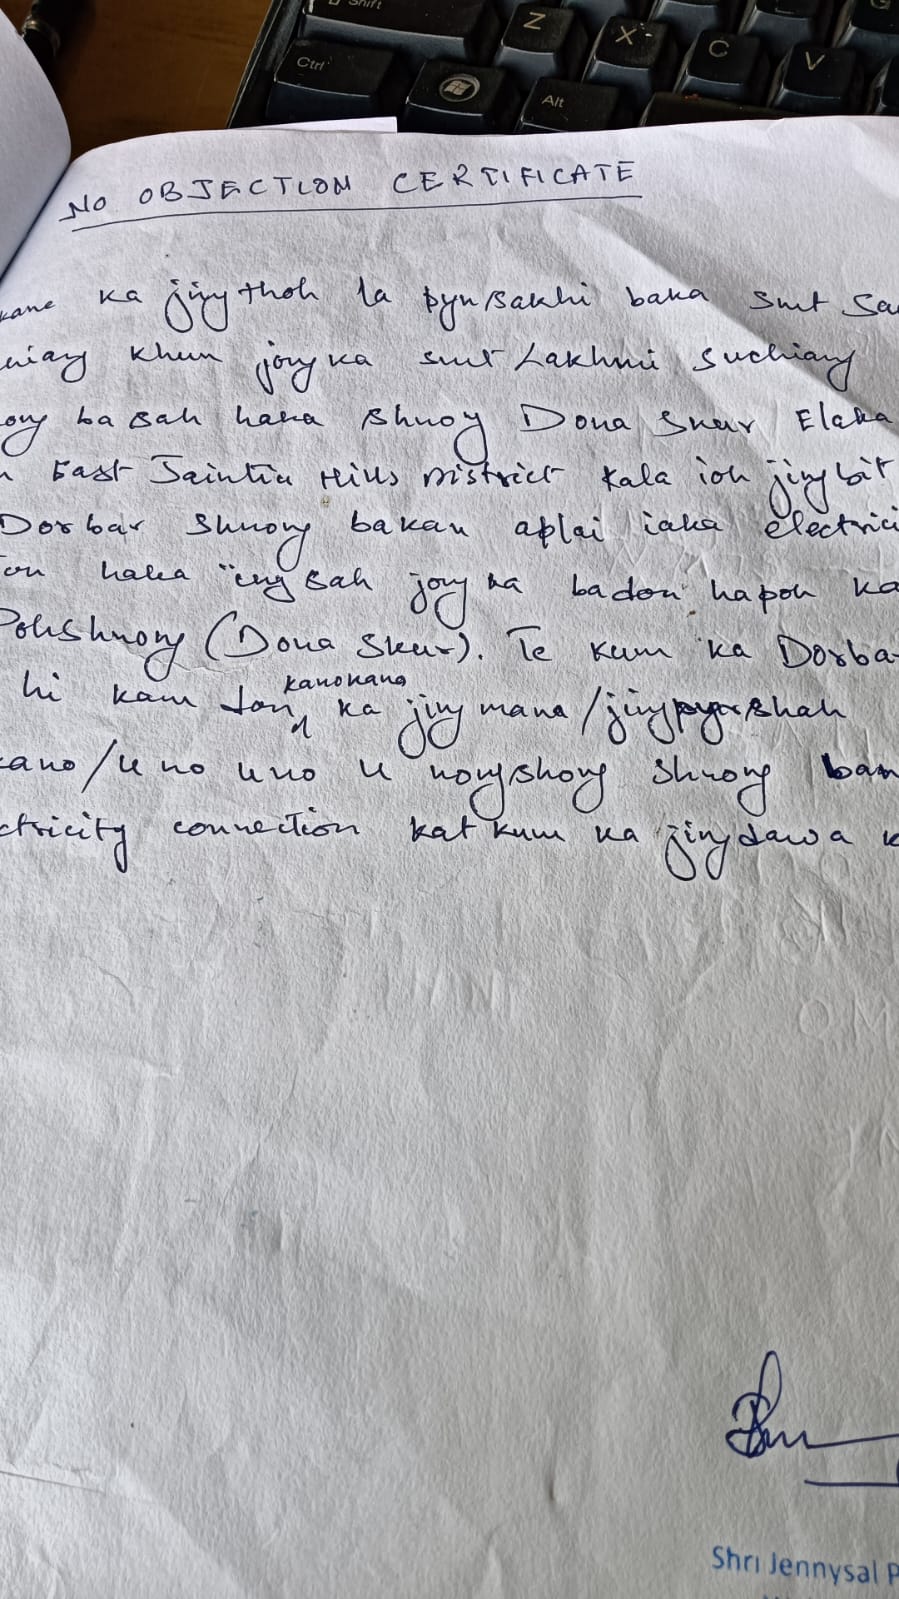 Shift
Z
X
C
V
Ctrl
Alt
NO OBJECTION CERTIFICATE
kane ka jingthoh la pynsakhi baka Smt Sa
hiang khun jong ka Smt Lakhmi Suchiang
ong ba sah haka Shnong Dona Skur Elaka
East Jaintia Hills District kala ioh jingbit
Dorbar Shnong bakan aplai iaka electrici
ion haka ïing sah jong ka badon hapoh ka
Pohshnong (Dona Skur). Te kum ka Dorba
hi kam don kanokano ka jingmana/jingpyrshah
kano/u no uno u nongshong shnong ban
ctricity connection kat kum ka jingdawa k
OM
Shri Jennysal P